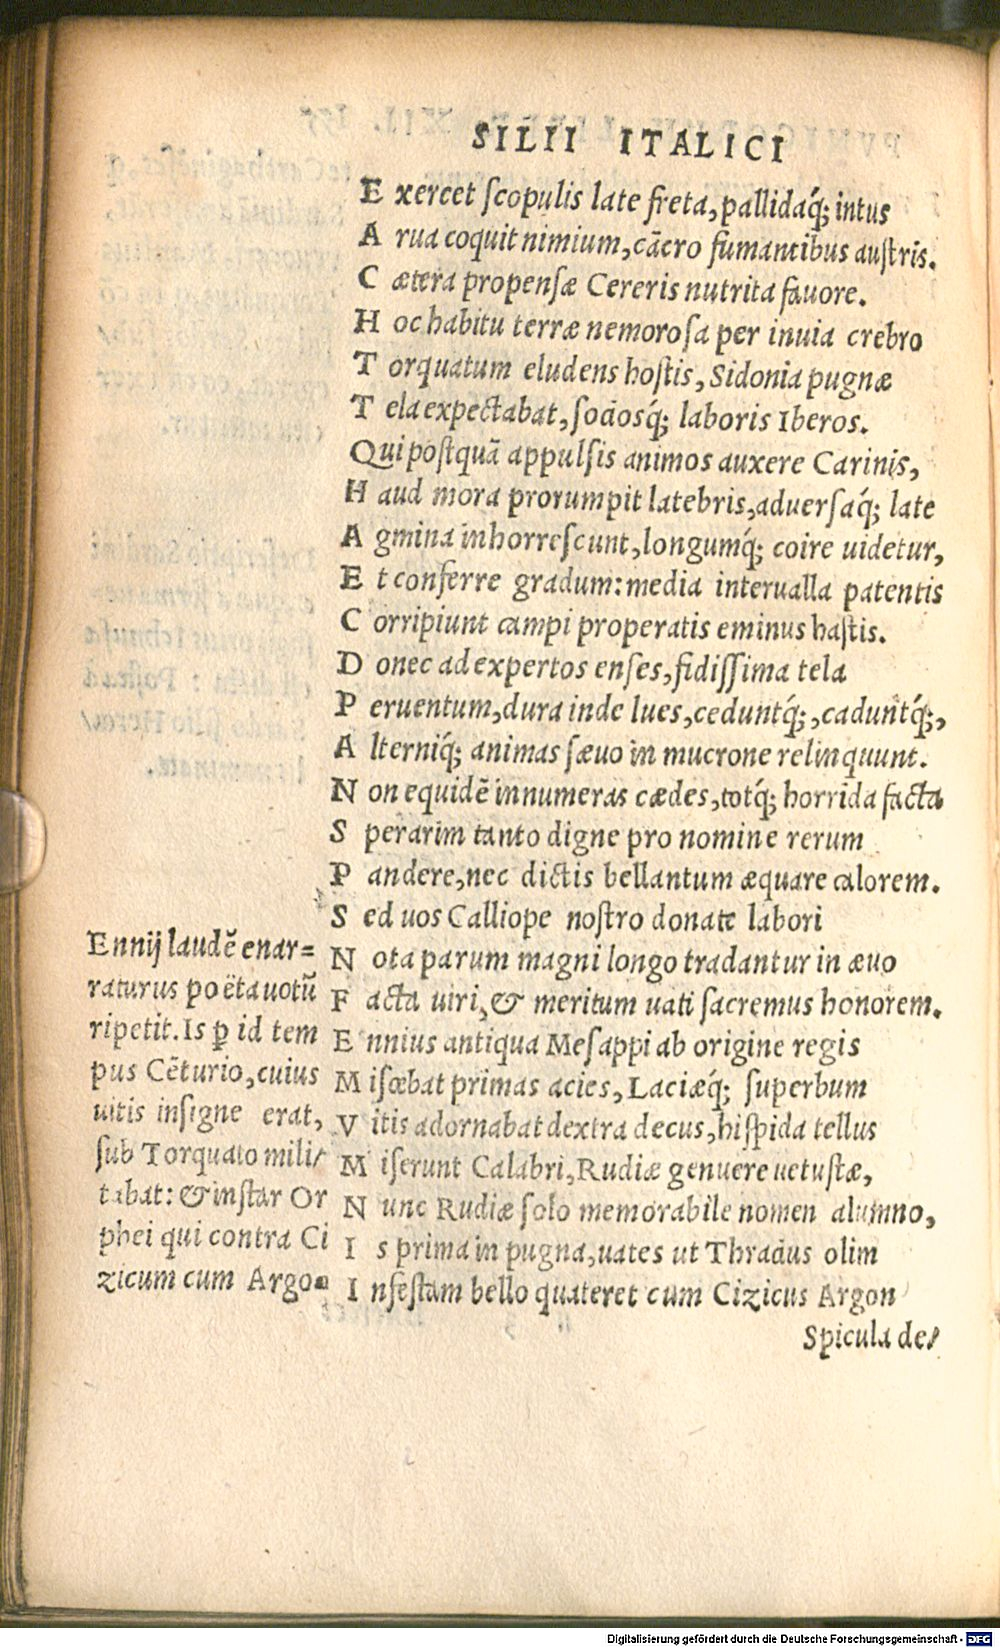 SILII ITALICI
Exercet ſcopulis late freta, pallidaq́; intus
Arua coquit nimium, cācro fumantibus auſtris.
Cætera propenſæ Cereris nutrita fauore.
Hoc habitu terræ nemoroſa per inuia crebro
Torquatum eludens hoſtis, Sidonia pugnæ
Tela expectabat, ſociosq́; laboris Iberos.
Qui poſtquā appulſis animos auxere Carinis,
Haud mora prorumpit latebris, aduerſaq́; late
Agmina inhorreſcunt, longumq́; coire uidetur,
Et conferre gradum: media interualla patentis
Corripiunt campi properatis eminus haſtis.
Donec ad expertos enſes, fidiſſima tela
Peruentum, dura inde lues, ceduntq́;, caduntq́;,
Alterniq́; animas ſæuo in mucrone relinquunt.
Non equidē innumeras cædes, totq́; horrida facta
Sperarim tanto digne pro nomine rerum
Pandere, nec dictis bellantum æquare calorem.
Sed uos Calliope noſtro donate labori
Nota parum magni longo tradantur in æuo
Facta uiri, & meritum uati ſacremus honorem.
Ennius antiqua Meſappi ab origine regis
Miſcebat primas acies, Laciæq́; ſuperbum
Vitis adornabat dextra decus, hiſpida tellus
Miſerunt Calabri, Rudiæ genuere uetuſtæ,
Nunc Rudiæ ſolo memorabile nomen alumno,
Is prima in pugna, uates ut Thracius olim
Infeſtam bello quateret cum Cizicus Argon
Spicula de/
Ennij laudē enar=
raturus poëta uotū
ripetit. Is ꝑ id tem
pus Cēturio, cuius
uitis inſigne erat,
ſub Torquato mili/
tabat: & inſtar Or
phei qui contra Ci
zicum cum Argo=
Digitalisierung gefördert durch die Deutsche Forschungsgemeinschaft - DFG